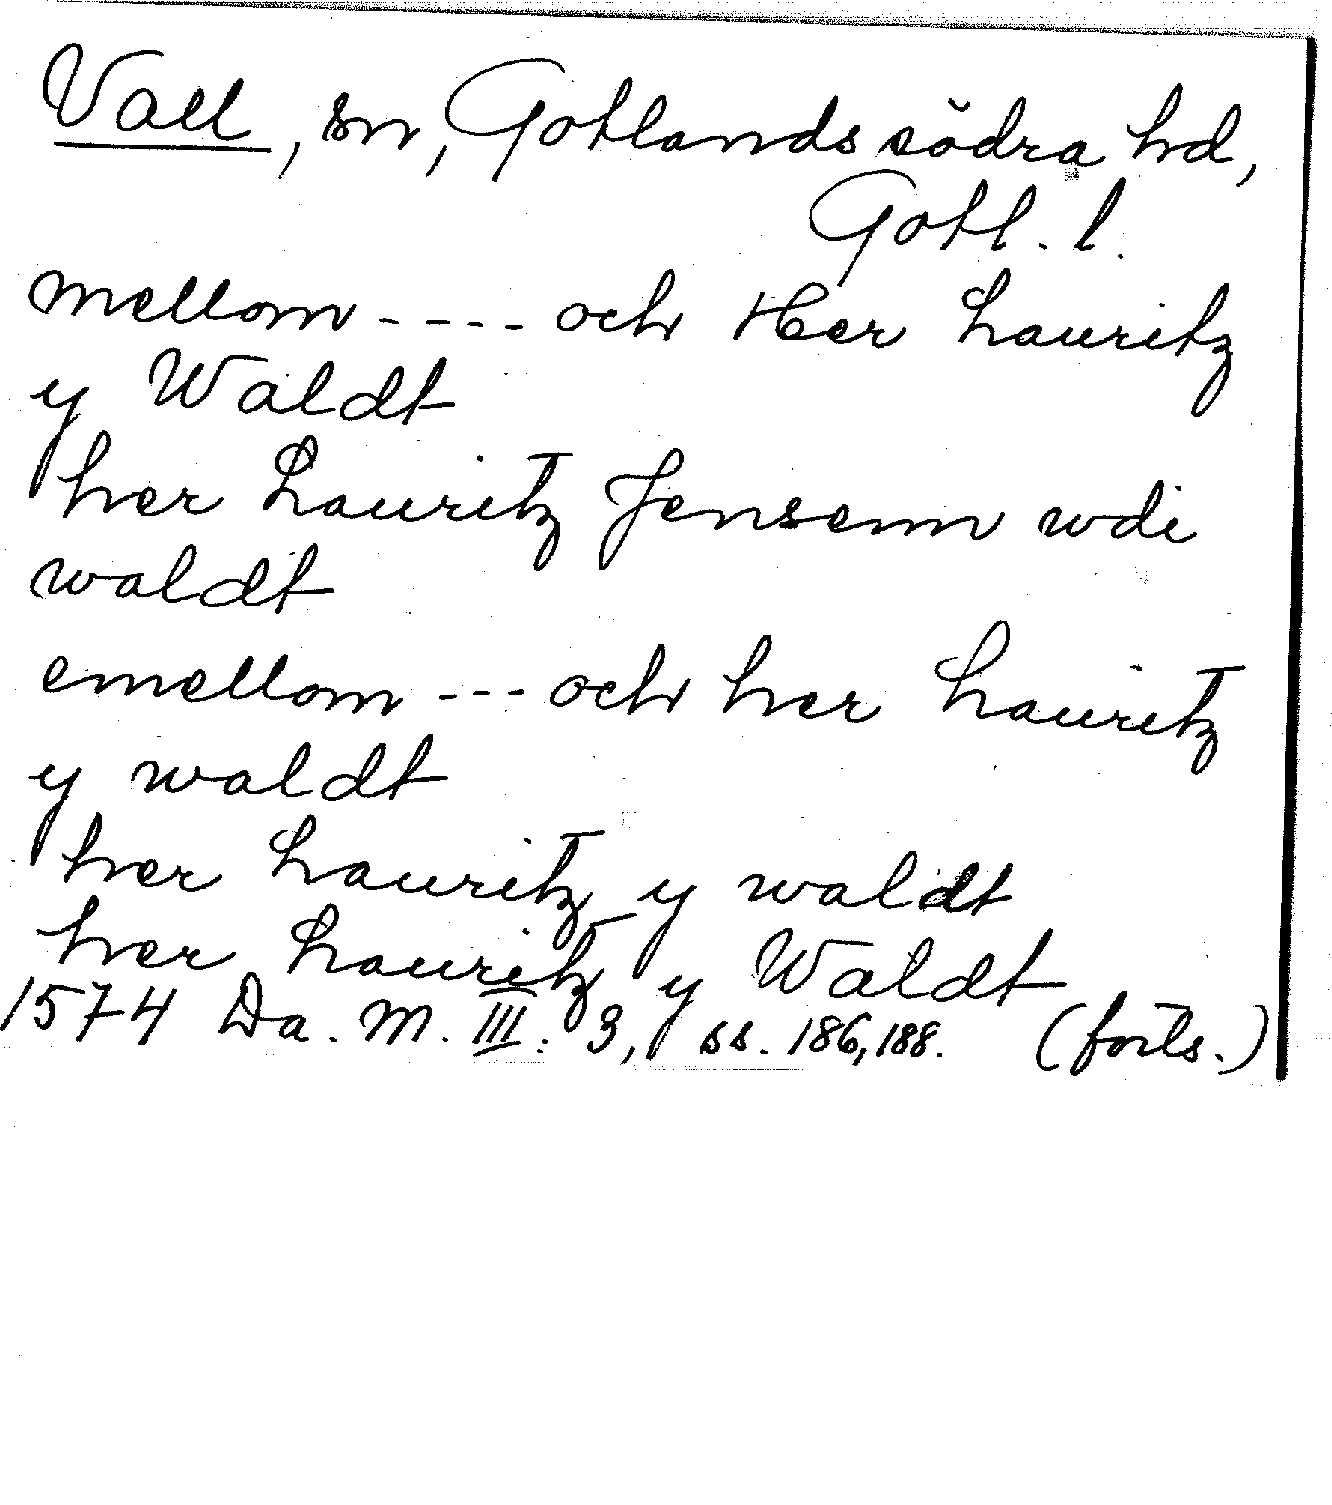 Vall, sn, Gotlands södra hd,
Gotl. l.
mellom - - - - och Her Lauritz
y Waldt
her Lauritz Jensenn wdi
waldt
emellom - - - och her Lauritz
y waldt
her Lauritz y waldt
her Lauritz y Waldt
1574 Da. M. III: 3, ss. 186, 188. (forts.)